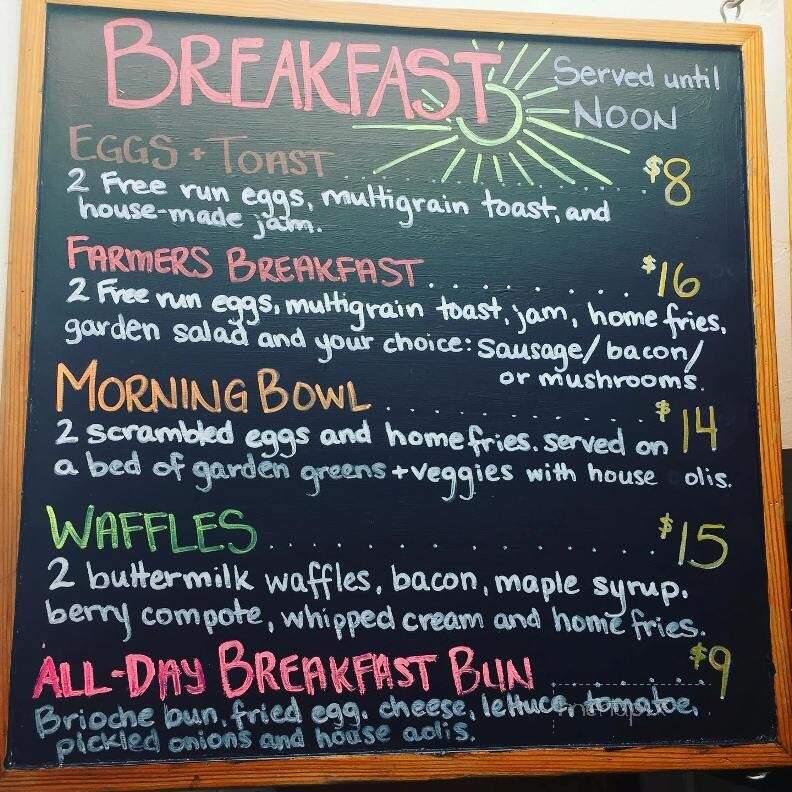 BREAKFAST Served until
NOON
EGGS + TOAST . . . . . . . . . . . . . . . $8
2 Free run eggs, multigrain toast, and
house-made jam.
FARMERS BREAKFAST . . . . . . . . $16
2 Free run eggs, multigrain toast, jam, home fries,
garden salad and your choice: sausage/bacon/
or mushrooms.
MORNING BOWL . . . . . . . . . . . $14
2 scrambled eggs and home fries. served on
a bed of garden greens + veggies with house olis.
WAFFLES . . . . . . . . . . . . . . . . $15
2 buttermilk waffles, bacon, maple syrup.
berry compote, whipped cream and home fries.
ALL-DAY BREAKFAST BUN . . . . . . $9
Brioche bun, fried egg, cheese, lettuce, tomatoe,
pickled onions and house aolis.